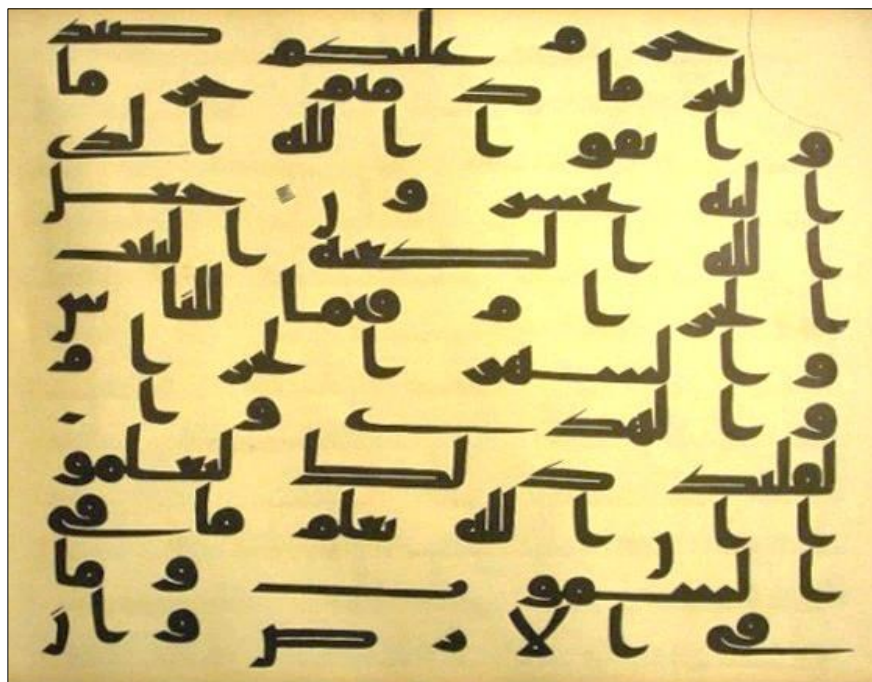 حرم عليكم صيد
البر ما دمتم حرما
واتقوا الله الذى
اليه تحشرون جعل
الله الكعبة البيت
الحرام قيما للناس
والشهر الحرام
والهدى وا
لقليد ذلك لتعلمو
ا ان الله يعلم ما فى
السموت وما
فى الارض وان